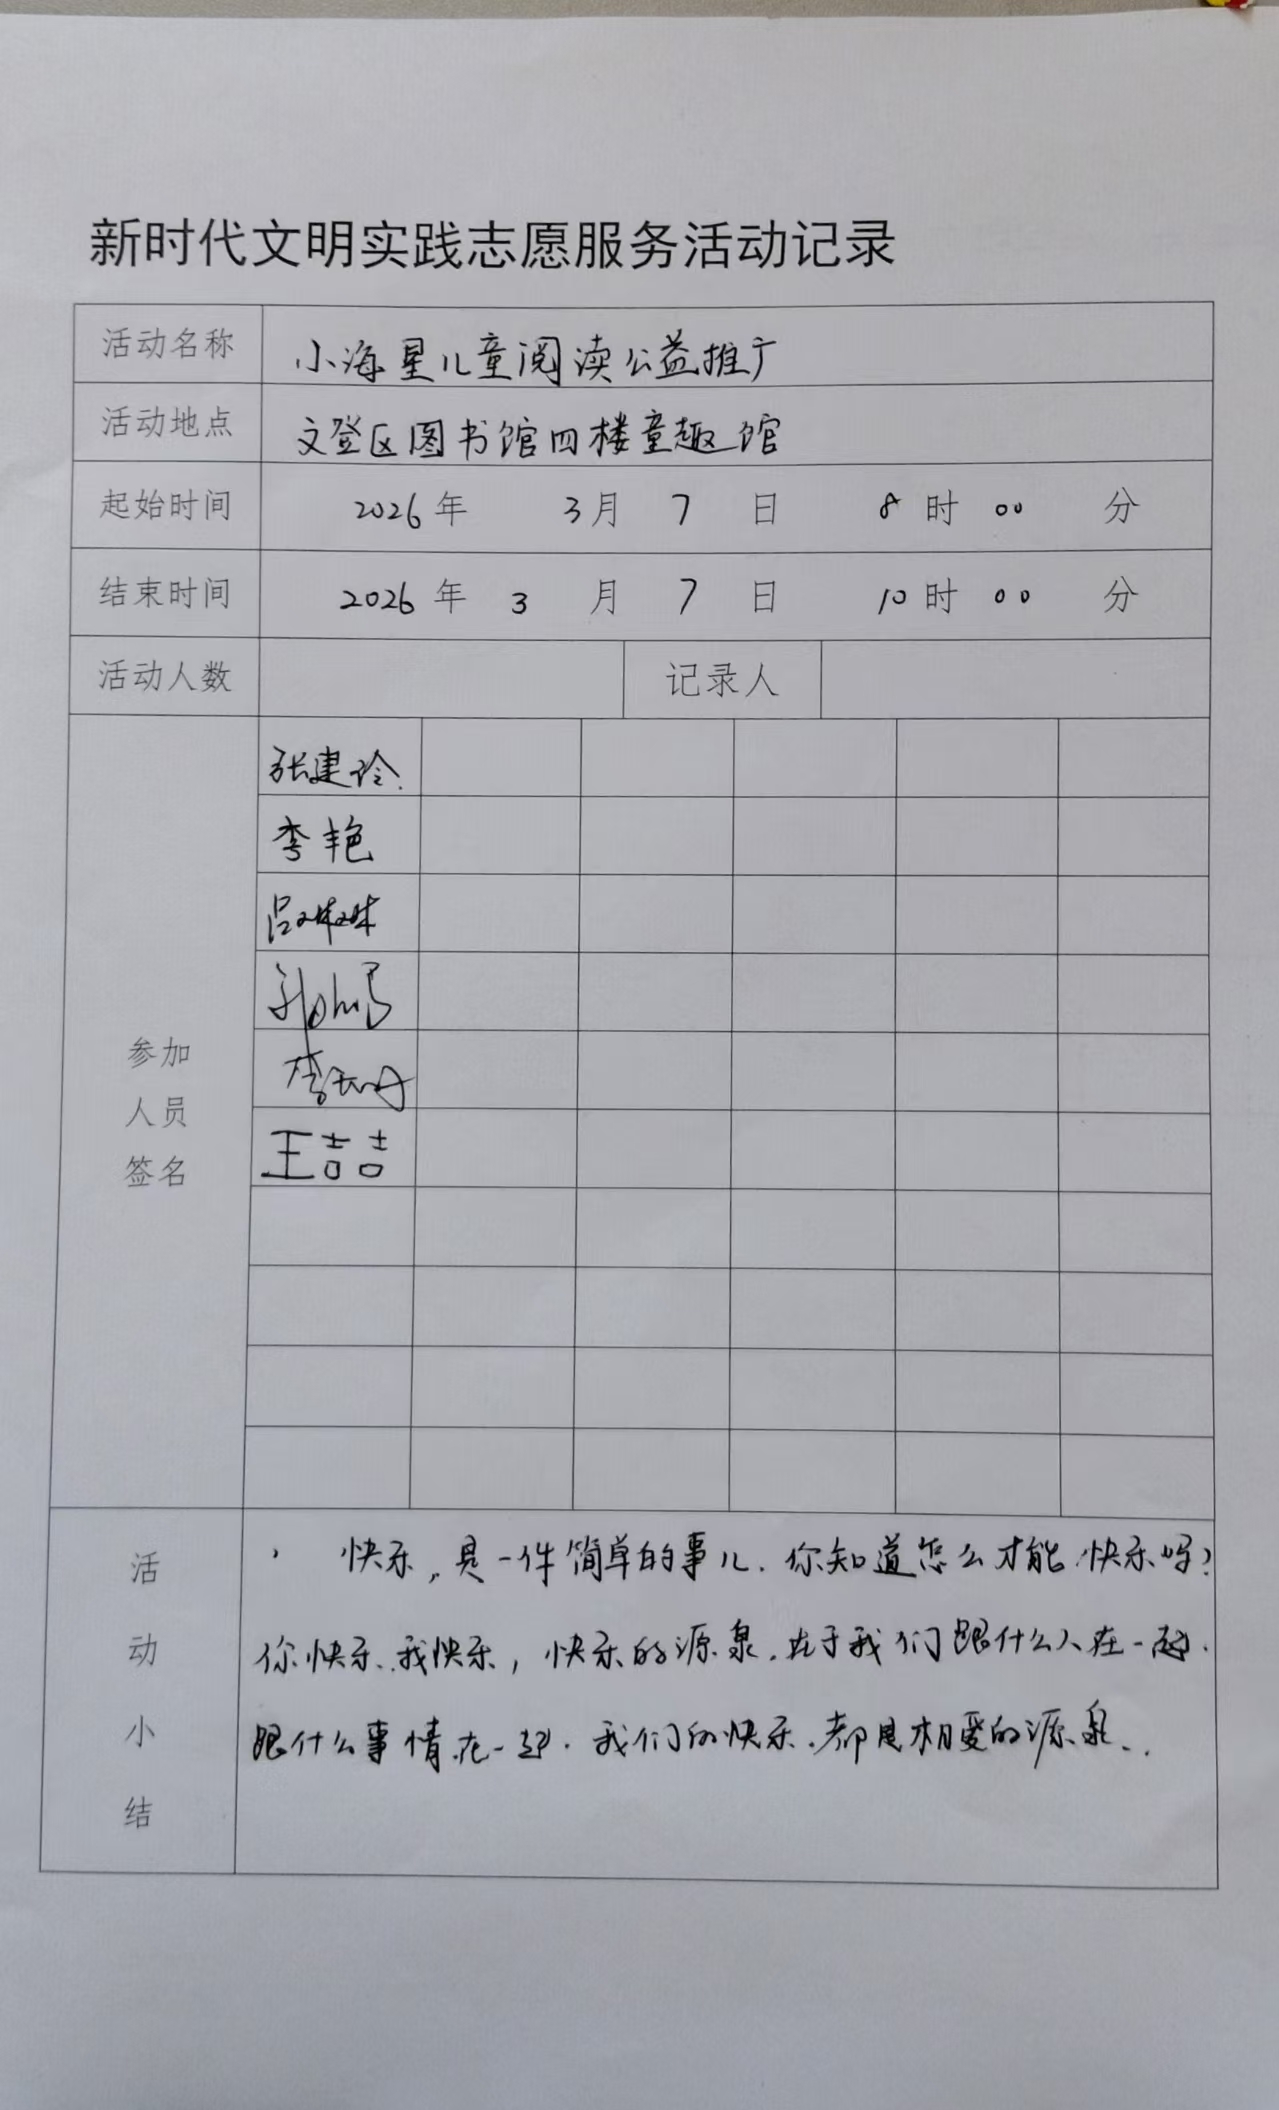 新时代文明实践志愿服务活动记录
活动名称 小海星儿童阅读公益推广
活动地点 文登区图书馆四楼童趣馆
起始时间 2026年 3月 7 日 8时 00 分
结束时间 2026年 3 月 7 日 10时 00 分
活动人数 记录人
参加人员签名
张建玲
李艳
吕姝姝
王喆
活动小结
快乐,是一件简单的事儿.你知道怎么才能快乐吗?
你快乐.我快乐,快乐的源泉.在于我们跟什么人在一起.
跟什么事情在一起.我们的快乐.都是相爱的源泉..